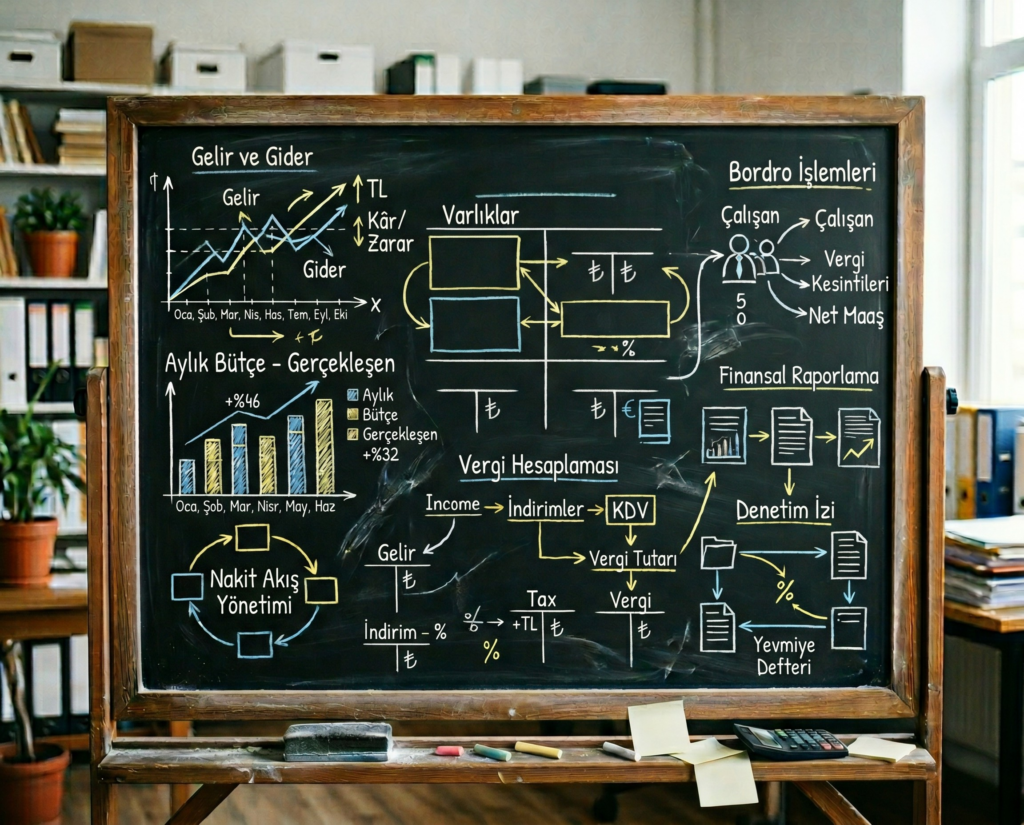 Gelir ve Gider
Gelir
TL
Kâr/
Zarar
Gider
X
Oca, Şub, Mar, Nis, Has, Tem, Eyl, Eki
Aylık Bütçe – Gerçekleşen
+%46
Aylık
Bütçe
Gerçekleşen
+%32
Oca, Şob, Mar, Nisr, May, Haz
Nakit Akış
Yönetimi
Varlıklar
₺ ₺
%
₺
₺ €
Vergi Hesaplaması
Income
İndirimler
KDV
Vergi Tutarı
Gelir
₺
İndirim – %
₺
%
%
Tax
+TL ₺
Vergi
₺
Bordro İşlemleri
Çalışan
Çalışan
Vergi
Kesintileri
Net Maaş
5
0
Finansal Raporlama
Denetim İzi
%
Yevmiye
Defteri